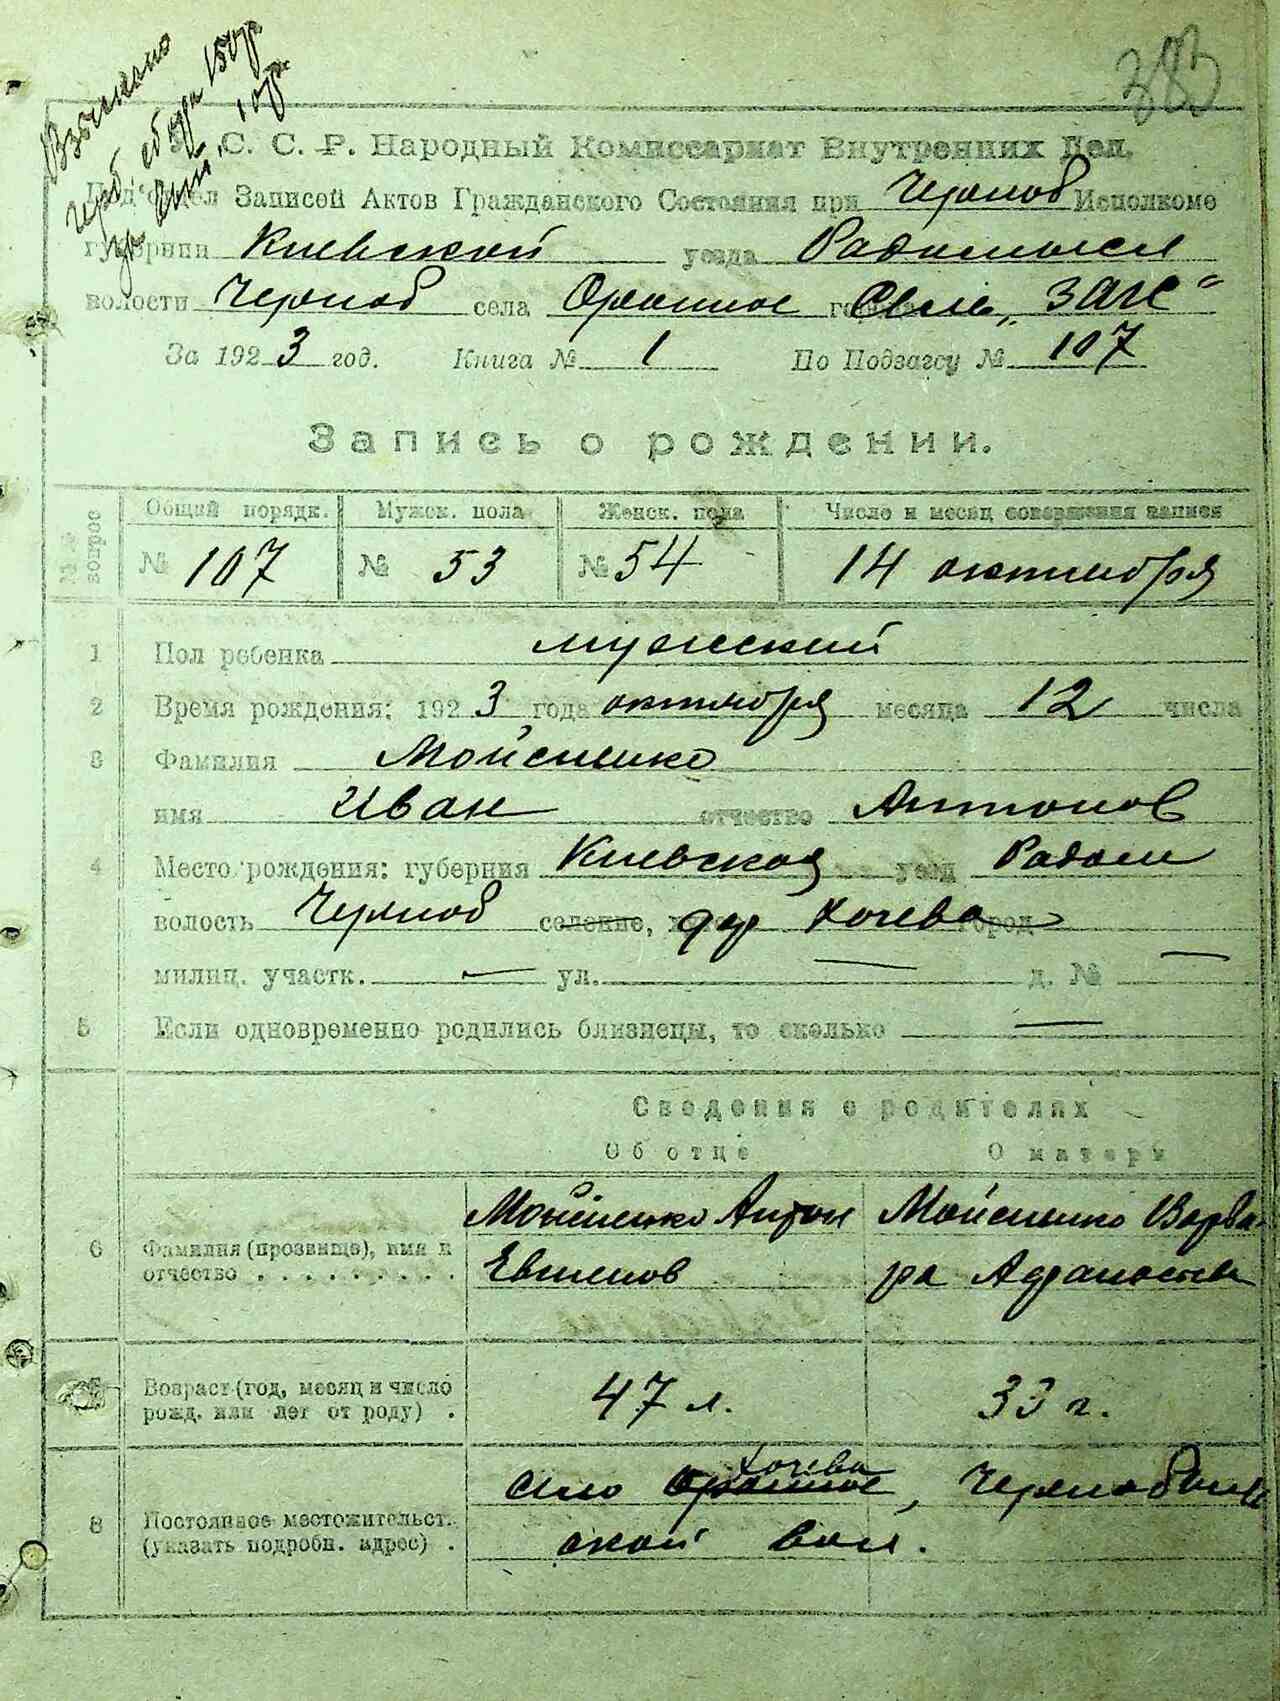 383
Взыскано
герб. сбора 150 р.
1 ор.
У. С. С. Р. Народный Комиссариат Внутренних Дел.
Подотдел Записей Актов Гражданского Состояния при Черноб Исполкоме
губернии Киевской уезда Радомысл
волости Черноб села Оранное города Сель „ЗАГС“
За 1923 год. Книга № 1 По Подзагсу № 107
Запись о рождении.
№№ вопрос
Общий порядк. Мужск. пола Женск. пола Число и месяц совершения записи
№ 107 № 53 № 54 14 октября
1 Пол ребенка мужеский
2 Время рождения: 1923 года октября месяца 12 числа
3 Фамилия Мойсиенко
имя Иван отчество Антонов
4 Место рождения: губерния Киевская уезд Радом
волость Черноб селение, дер Хочева город
милиц. участк. — ул. — д. № —
5 Если одновременно родились близнецы, то сколько —
Сведения о родителях
Об отце О матери
6 Фамилия (прозвище), имя и отчество . . . . . . . . . .
Мойсиенко Антон Мойсиенко Варва-
Евтиеев ра Афанасьев
7 Возраст (год, месяц и число рожд. или лет от роду) . 47 л. 33 г.
8 Постоянное местожительст. (указать подробн. адрес) .
Хочева
село Оранное, Чернобыль
ской вол.